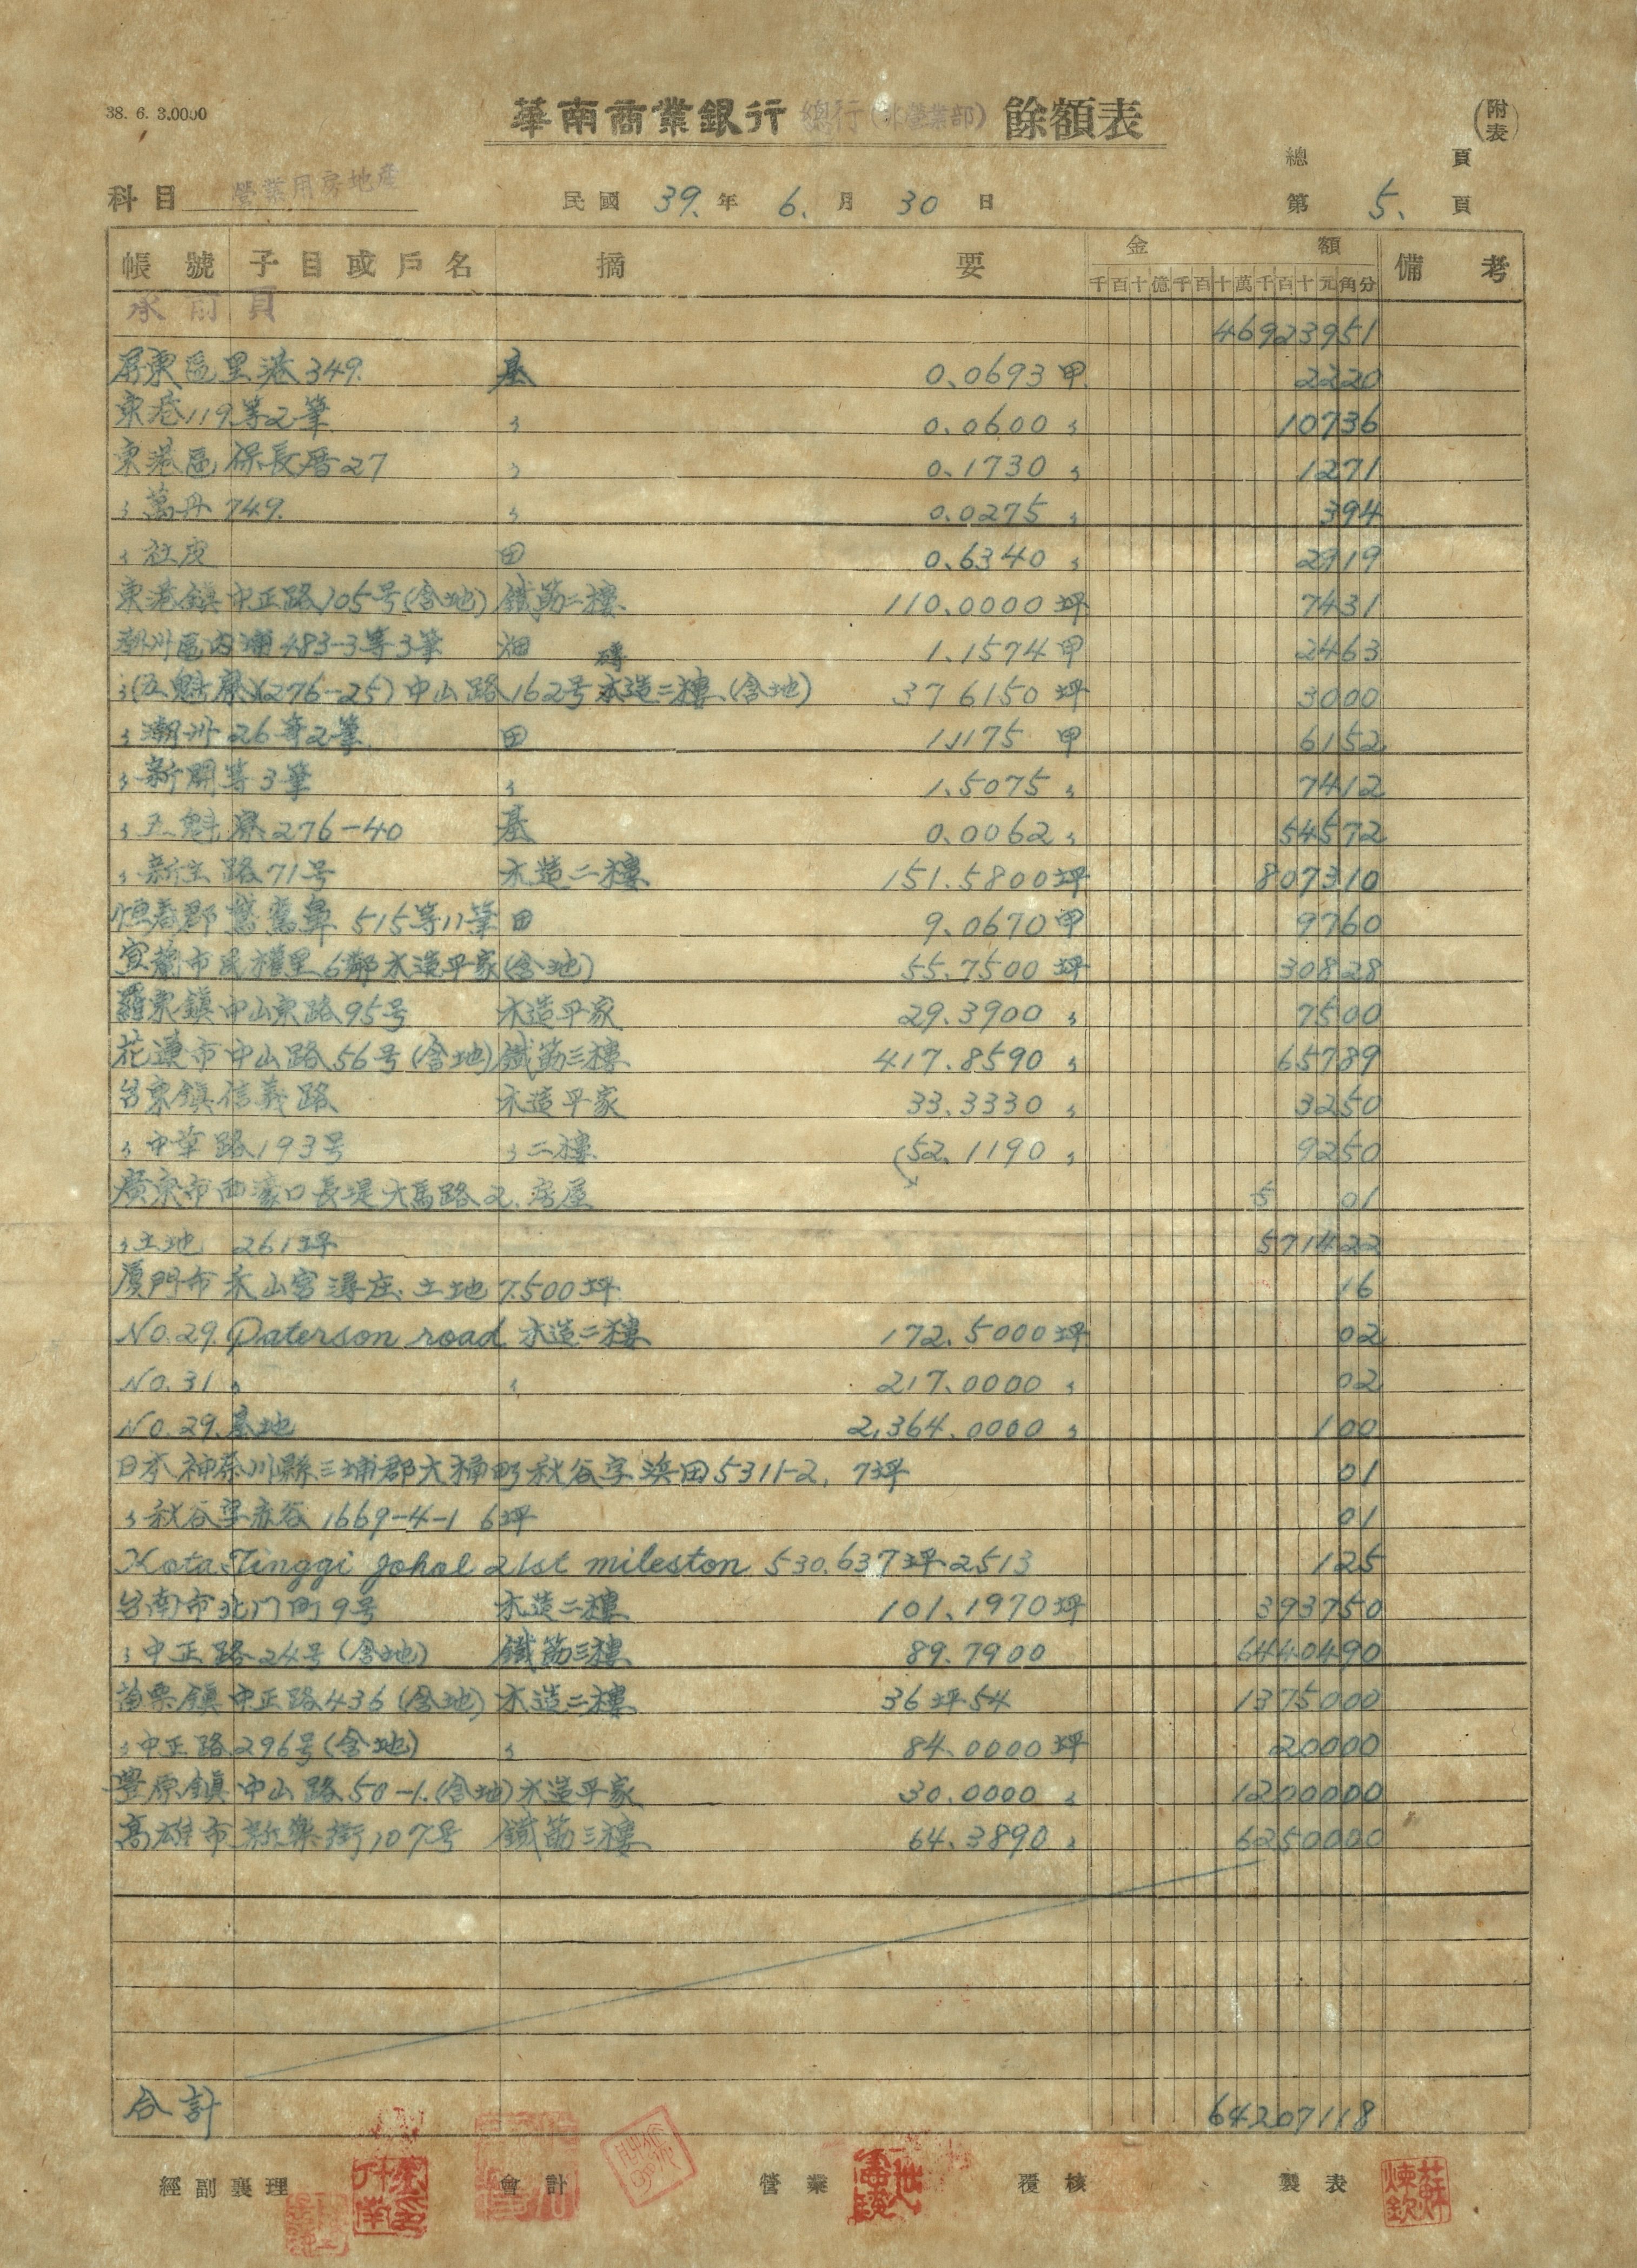 38. 6. 3.0000
華南商業銀行 總行(非營業部) 餘額表 (附表)
總 頁
科目 營業用房地產 民國 39. 年 6. 月 30 日 第 5. 頁
帳號 子目或戶名 摘要 金額 備考
千百十億千百十萬千百十元角分
承前頁 46923951
屏東區里港349. 基 0.0693甲 2220
東港119.等2筆 〃 0.0600〃 10736
東港區保長厝27 〃 0.1730〃 1271
〃萬丹749. 〃 0.0275〃 394
〃社皮 田 0.6340〃 2919
東港鎮中正路105号(含地) 鐵筋二樓 110.0000坪 7431
潮州區內埔483-3等3筆 畑 1.1574甲 2463
〃(五魁寮)(276-25)中山路162号磚造二樓(含地) 376150坪 3000
〃潮州26等2筆 田 1.1175甲 6152
〃新開等3筆 〃 1.5075〃 7412
〃五魁寮276-40 基 0.0062〃 54572
〃新生路71号 木造二樓 151.5800坪 807310
恒春郡鵞鸞鼻515等11筆 田 9.0670甲 9760
宜蘭市民權里6鄰木造平家(含地) 55.7500坪 30828
羅東鎮中山東路95号 木造平家 29.3900〃 7500
花蓮市中山路56号(含地) 鐵筋三樓 417.8590〃 65789
台東鎮信義路 木造平家 33.3330〃 3250
〃中華路193号 〃二樓 52.1190〃 9250
廣東市西濠口長堤大馬路2.房屋 5 01
〃土地 261坪 571422
厦門市禾山宮潯庄.土地7.500坪 16
No.29. Paterson road 木造二樓 172.5000坪 02
No.31〃 〃 217.0000〃 02
No.29.基地 2,364.0000〃 100
日本神奈川縣三埔郡大楠町秋谷字浜田5311-2, 7坪 01
〃秋谷字赤谷1669-4-1 6坪 01
Kota Tinggi Johol 21st mileston 530.637坪2513 125
台南市北门町9号 木造二樓 101.1970坪 393750
〃中正路24号(含地) 鐵筋三樓 89.7900 6440490
苗栗鎮中正路436(含地) 木造二樓 36坪54 1375000
〃中正路296号(含地) 〃 84.0000坪 20000
豊原鎮中山路50-1.(含地)木造平家 30.0000〃 1200000
高雄市新樂街107号 鐵筋三樓 64.3890〃 6250000
合計 64207118
經副襄理 會計 營業 覆核 製表 蘇煉欽